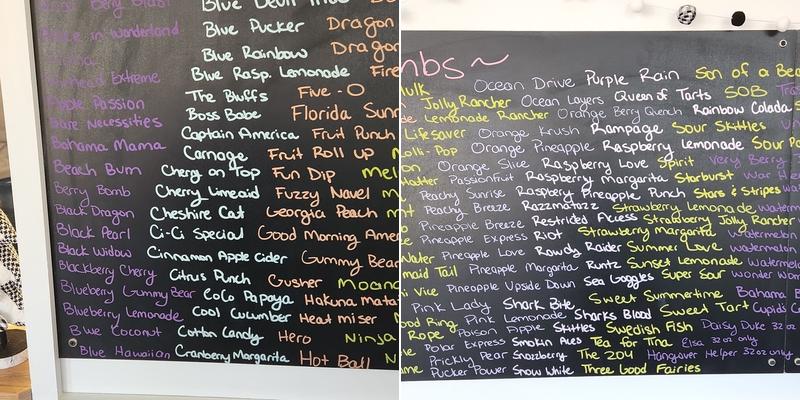 Blue Devil
in Wonderland Blue Pucker Dragon
Blue Rainbow Dragon
Extreme Blue Rasp. Lemonade Fire
Apple Passion The Bluffs Five-O
Bare Necessities Boss Babe Florida Sunr
Bahama Mama Captain America Fruit Punch
Beach Bum Carnage Fruit Roll up
Berry Bomb Cherry on Top Fun Dip Mel
Black Dragon Cherry Limeaid Fuzzy Navel
Black Pearl Cheshire Cat Georgia Peach
Black Widow Ci-Ci Special Good Morning Ame
Blackberry Cherry Cinnamon Apple Cider Gummy Bea
Blueberry Gummy Bear Citrus Punch Gusher Moon
Blueberry Lemonade CoCo Papaya Hakuna Mata
Blue Coconut Cool Cucumber Heat miser
Blue Hawaiian Cotton Candy Hero Ninja
Cranberry Margarita Hot Ball
mbs~
Hulk Ocean Drive Purple Rain Son of a Bea
Jolly Rancher Ocean Layers Queen of Tarts SOB
Lemonade Rancher Orange Berry Quench Rainbow Colada
Lifesaver Orange Krush Rampage Sour Skittles
Lolli Pop Orange Pineapple Raspberry Lemonade Sour Pa
Orange Slice Raspberry Love Spirit Very Berry
Hatter Passionfruit Raspberry Margarita Starburst War
Peachy Sunrise Raspberry Pineapple Punch Stars & Stripes
Peachy Breeze Razzmatazz Strawberry Lemonade waterm
Pineapple Breeze Restricted Access Strawberry Jolly Rancher
Pineapple Express Riot Strawberry Margarita Watermelon
Water Pineapple Love Rowdy Raider Summer Love watermelon
maid Tail Pineapple Margarita Runtz Sunset Lemonade Watermel
Vice Pineapple Upside Down Sea Goggles Super Sour Wonder Wom
Pink Lady Shark Bite Sweet Summertime Bahama B
Ring Pink Lemonade Sharks Blood Sweet Tart Cupid's
Rope Poison Apple Skittles Swedish Fish Daisy Duke 32oz
Polar Express Smokin Aces Tea for Tina Elsa 32oz only
Prickly Pear Snozzberry The 204 Hangover Helper 32oz only
Pucker Power Snow White Three Good Fairies